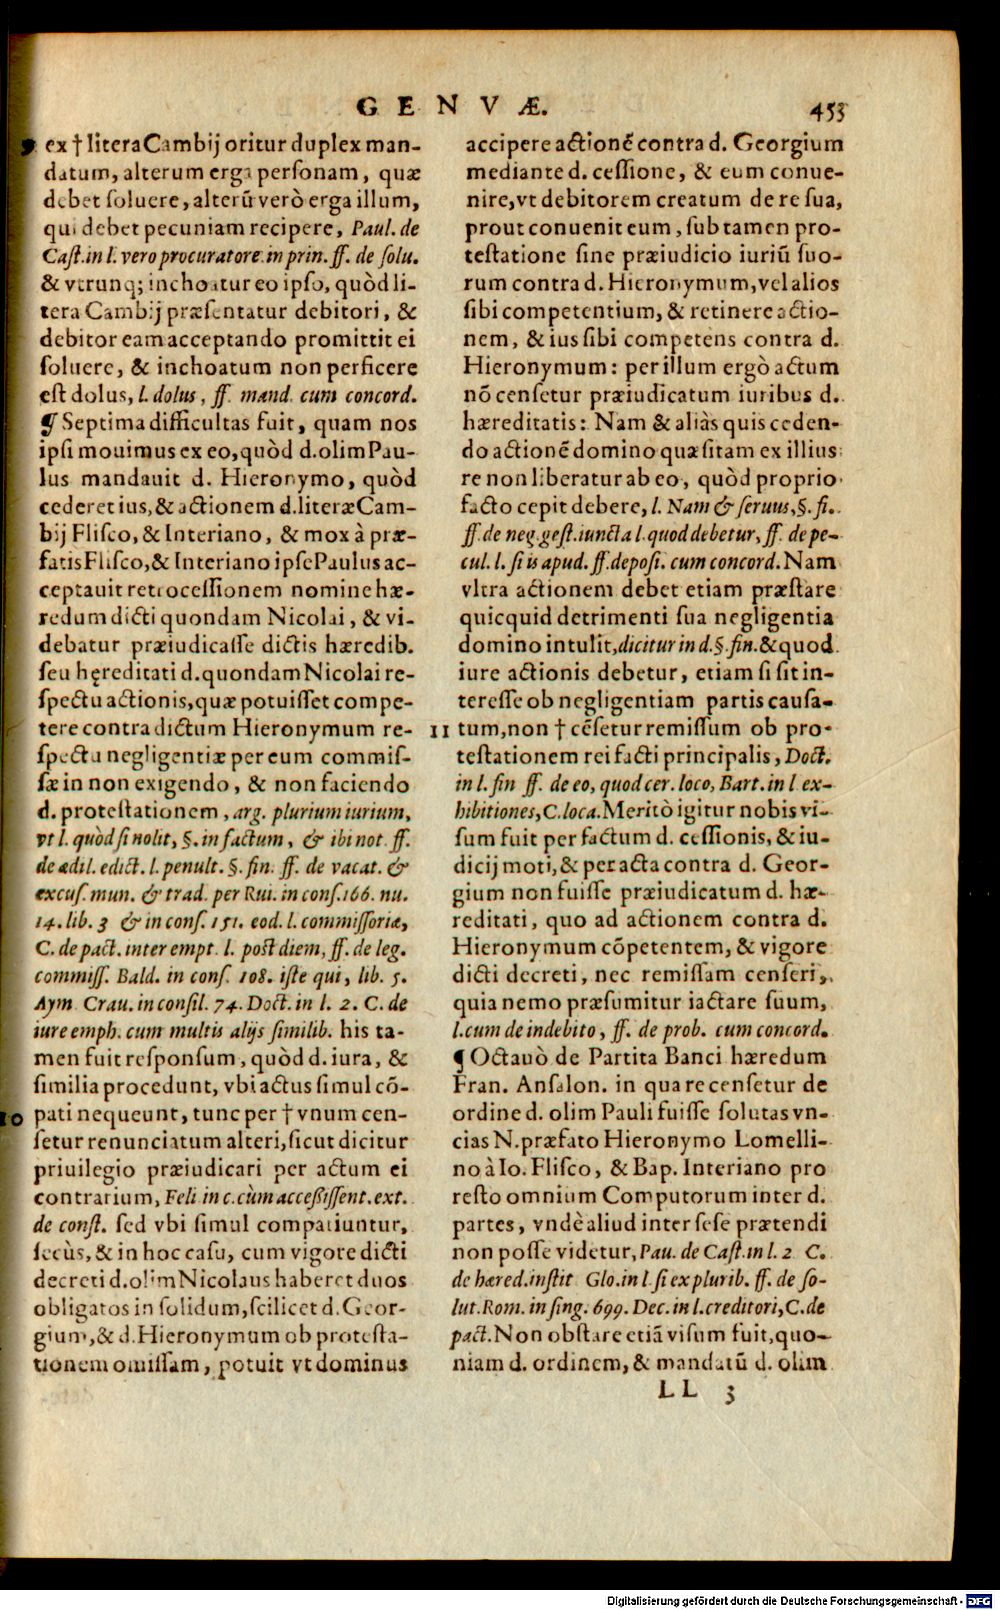 GENVÆ. 453
9 ex † litera Cambij oritur duplex man-
datum, alterum erga personam, quæ
debet soluere, alterũ verò erga illum,
qui debet pecuniam recipere, Paul. de
Cast. in l. vero procuratore. in prin. ff. de solu.
& vtrunq; inchoatur eo ipso, quòd li-
tera Cambij præsentatur debitori, &
debitor eam acceptando promittit ei
soluere, & inchoatum non perficere
est dolus, l. dolus, ff. mand. cum concord.
¶ Septima difficultas fuit, quam nos
ipsi mouimus ex eo, quòd d. olim Pau-
lus mandauit d. Hieronymo, quòd
cederet ius, & actionem d. literæ Cam-
bij Flisco, & Interiano, & mox à præ-
fatis Flisco, & Interiano ipse Paulus ac-
ceptauit retrocessionem nomine hæ-
redum dicti quondam Nicolai, & vi-
debatur præiudicasse dictis hæredib.
seu hęreditati d. quondam Nicolai re-
spectu actionis, quæ potuisset compe-
tere contra dictum Hieronymum re-
spectu negligentiæ per eum commis-
sæ in non exigendo, & non faciendo
d. protestationem, arg. plurium iurium,
vt l. quòd si nolit, §. in factum, & ibi not. ff.
de ædil. edict. l. penult. §. fin. ff. de vacat. &
excus. mun. & trad. per Rui. in cons. 166. nu.
14. lib. 3 & in cons. 151. eod. l. commissoriæ,
C. de pact. inter empt. l. post diem, ff. de leg.
commiss. Bald. in cons. 108. iste qui, lib. 5.
Aym. Crau. in consil. 74. Doct. in l. 2. C. de
iure emph. cum multis alijs similib. his ta-
men fuit responsum, quòd d. iura, &
similia procedunt, vbi actus simul cõ-
10 pati nequeunt, tunc per † vnum cen-
setur renunciatum alteri, sicut dicitur
priuilegio præiudicari per actum ei
contrarium, Feli. in c. cùm accessissent. ext.
de const. sed vbi simul compatiuntur,
secùs, & in hoc casu, cum vigore dicti
decreti d. olim Nicolaus haberet duos
obligatos in solidum, scilicet d. Geor-
gium, & d. Hieronymum ob protesta-
tionem omissam, potuit vt dominus
accipere actionẽ contra d. Georgium
mediante d. cessione, & eum conue-
nire, vt debitorem creatum de re sua,
prout conuenit eum, sub tamen pro-
testatione sine præiudicio iuriũ suo-
rum contra d. Hieronymum, vel alios
sibi competentium, & retinere actio-
nem, & ius sibi competens contra d.
Hieronymum: per illum ergò actum
nõ censetur præiudicatum iuribus d.
hæreditatis: Nam & aliàs quis ceden-
do actionẽ domino quæsitam ex illius
re non liberatur ab eo, quòd proprio
facto cepit debere, l. Nam & seruus, §. fi.
ff. de neg. gest. iuncta l. quod debetur, ff. de pe-
cul. l. si is apud. ff. deposi. cum concord. Nam
vltra actionem debet etiam præstare
quicquid detrimenti sua negligentia
domino intulit, dicitur in d. §. fin. & quod
iure actionis debetur, etiam si sit in-
teresse ob negligentiam partis causa-
11 tum, non † cẽsetur remissum ob pro-
testationem rei facti principalis, Doct.
in l. fin ff. de eo, quod cer. loco, Bart. in l ex-
hibitiones, C. loca. Meritò igitur nobis vi-
sum fuit per factum d. cessionis, & iu-
dicij moti, & peracta contra d. Geor-
gium non fuisse præiudicatum d. hæ-
reditati, quo ad actionem contra d.
Hieronymum cõpetentem, & vigore
dicti decreti, nec remissam censeri,
quia nemo præsumitur iactare suum,
l. cum de indebito, ff. de prob. cum concord.
¶ Octauò de Partita Banci hæredum
Fran. Ansalon. in qua recensetur de
ordine d. olim Pauli fuisse solutas vn-
cias N. præfato Hieronymo Lomelli-
no à Io. Flisco, & Bap. Interiano pro
resto omnium Computorum inter d.
partes, vndè aliud inter sese prætendi
non posse videtur, Pau. de Cast. in l. 2 C.
de hæred. instit Glo. in l. si ex plurib. ff. de so-
lut. Rom. in sing. 699. Dec. in l. creditori, C. de
pact. Non obstare etiã visum fuit, quo-
niam d. ordinem, & mandatũ d. olim
LL 3
Digitalisierung gefördert durch die Deutsche Forschungsgemeinschaft - DFG